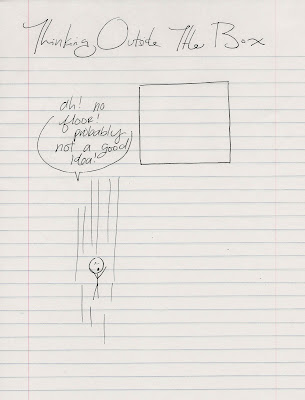 Thinking Outside The Box
oh! no
floor!
probably
not a good
idea!